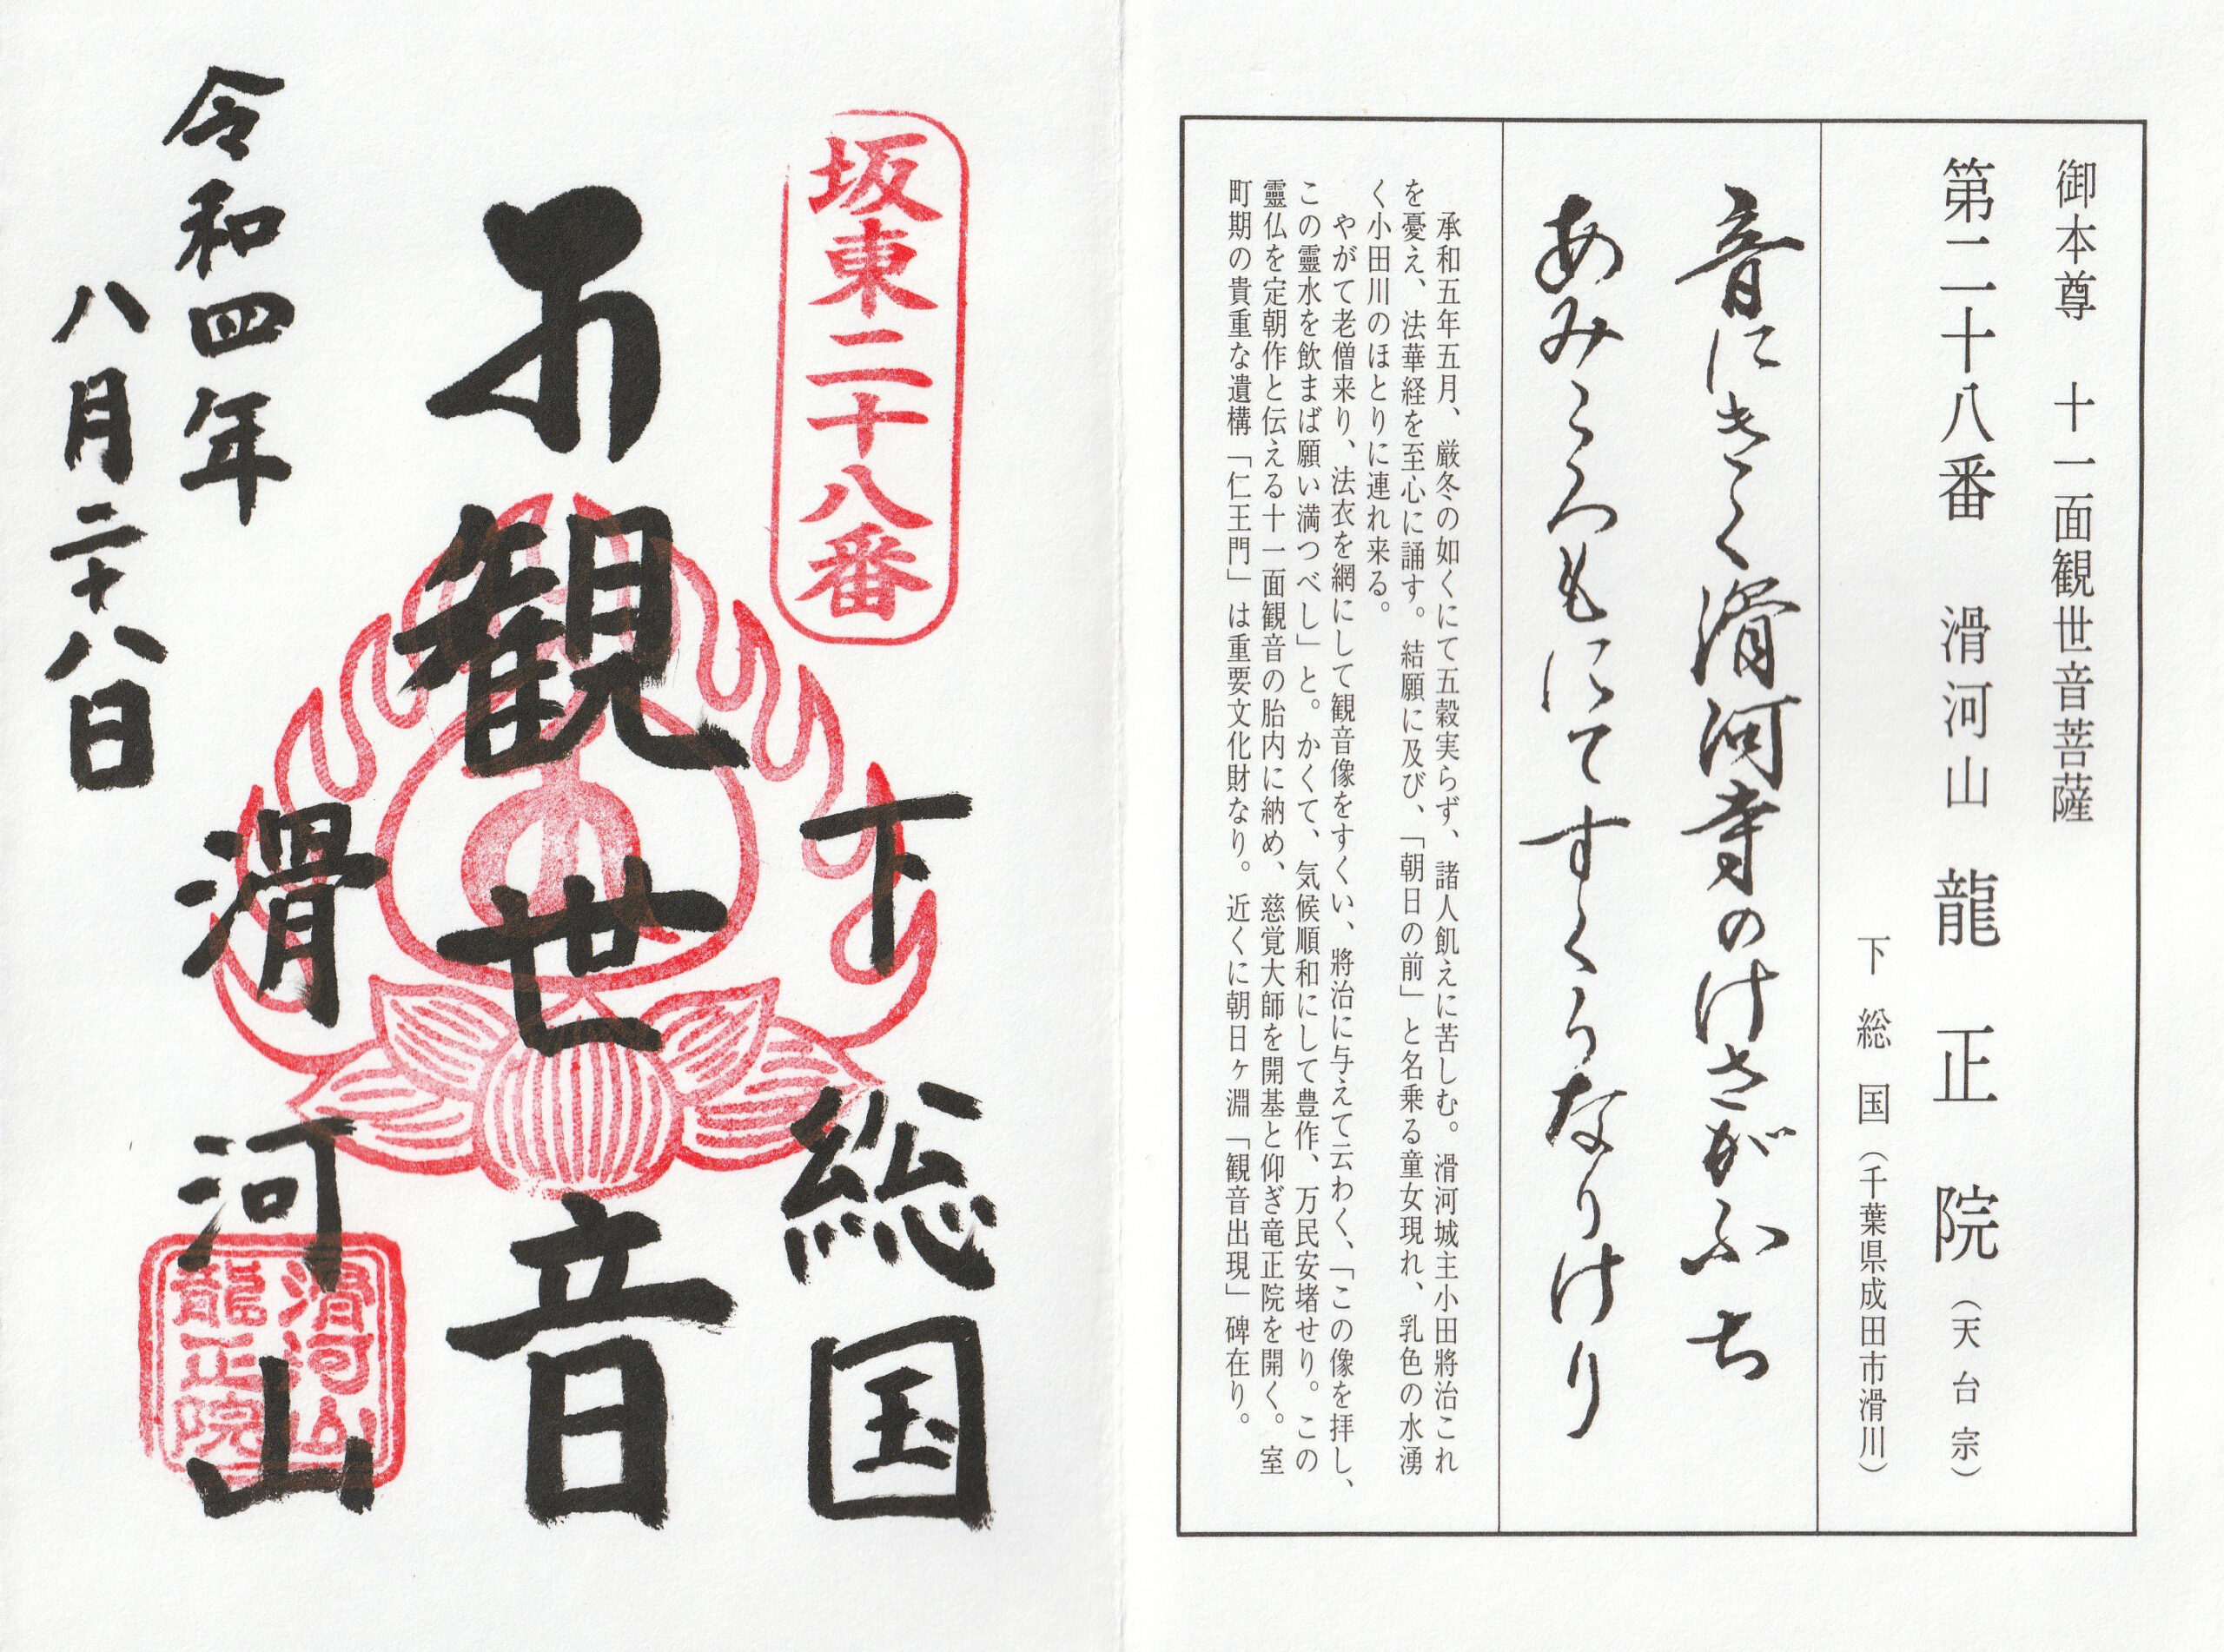 御本尊　十一面観世音菩薩
第二十八番　滑河山　龍正院（天台宗）
下総国（千葉県成田市滑川）
音にきく滑河寺のけさがふち
あみころもにてすくうなりけり
承和五年五月、厳冬の如くにて五穀実らず、諸人飢えに苦しむ。滑河城主小田將治これ
を憂え、法華経を至心に誦す。結願に及び、「朝日の前」と名乗る童女現れ、乳色の水湧
く小田川のほとりに連れ来る。
やがて老僧来り、法衣を網にして観音像をすくい、將治に与えて云わく、「この像を拝し、
この靈水を飲まば願い満つべし」と。かくて、気候順和にして豊作、万民安堵せり。この
靈仏を定朝作と伝える十一面観音の胎内に納め、慈覚大師を開基と仰ぎ竜正院を開く。室
町期の貴重な遺構「仁王門」は重要文化財なり。近くに朝日ヶ淵「観音出現」碑在り。
坂東二十八番
下総国
観世音
滑河山
滑河山
龍正院
令和四年
八月二十八日